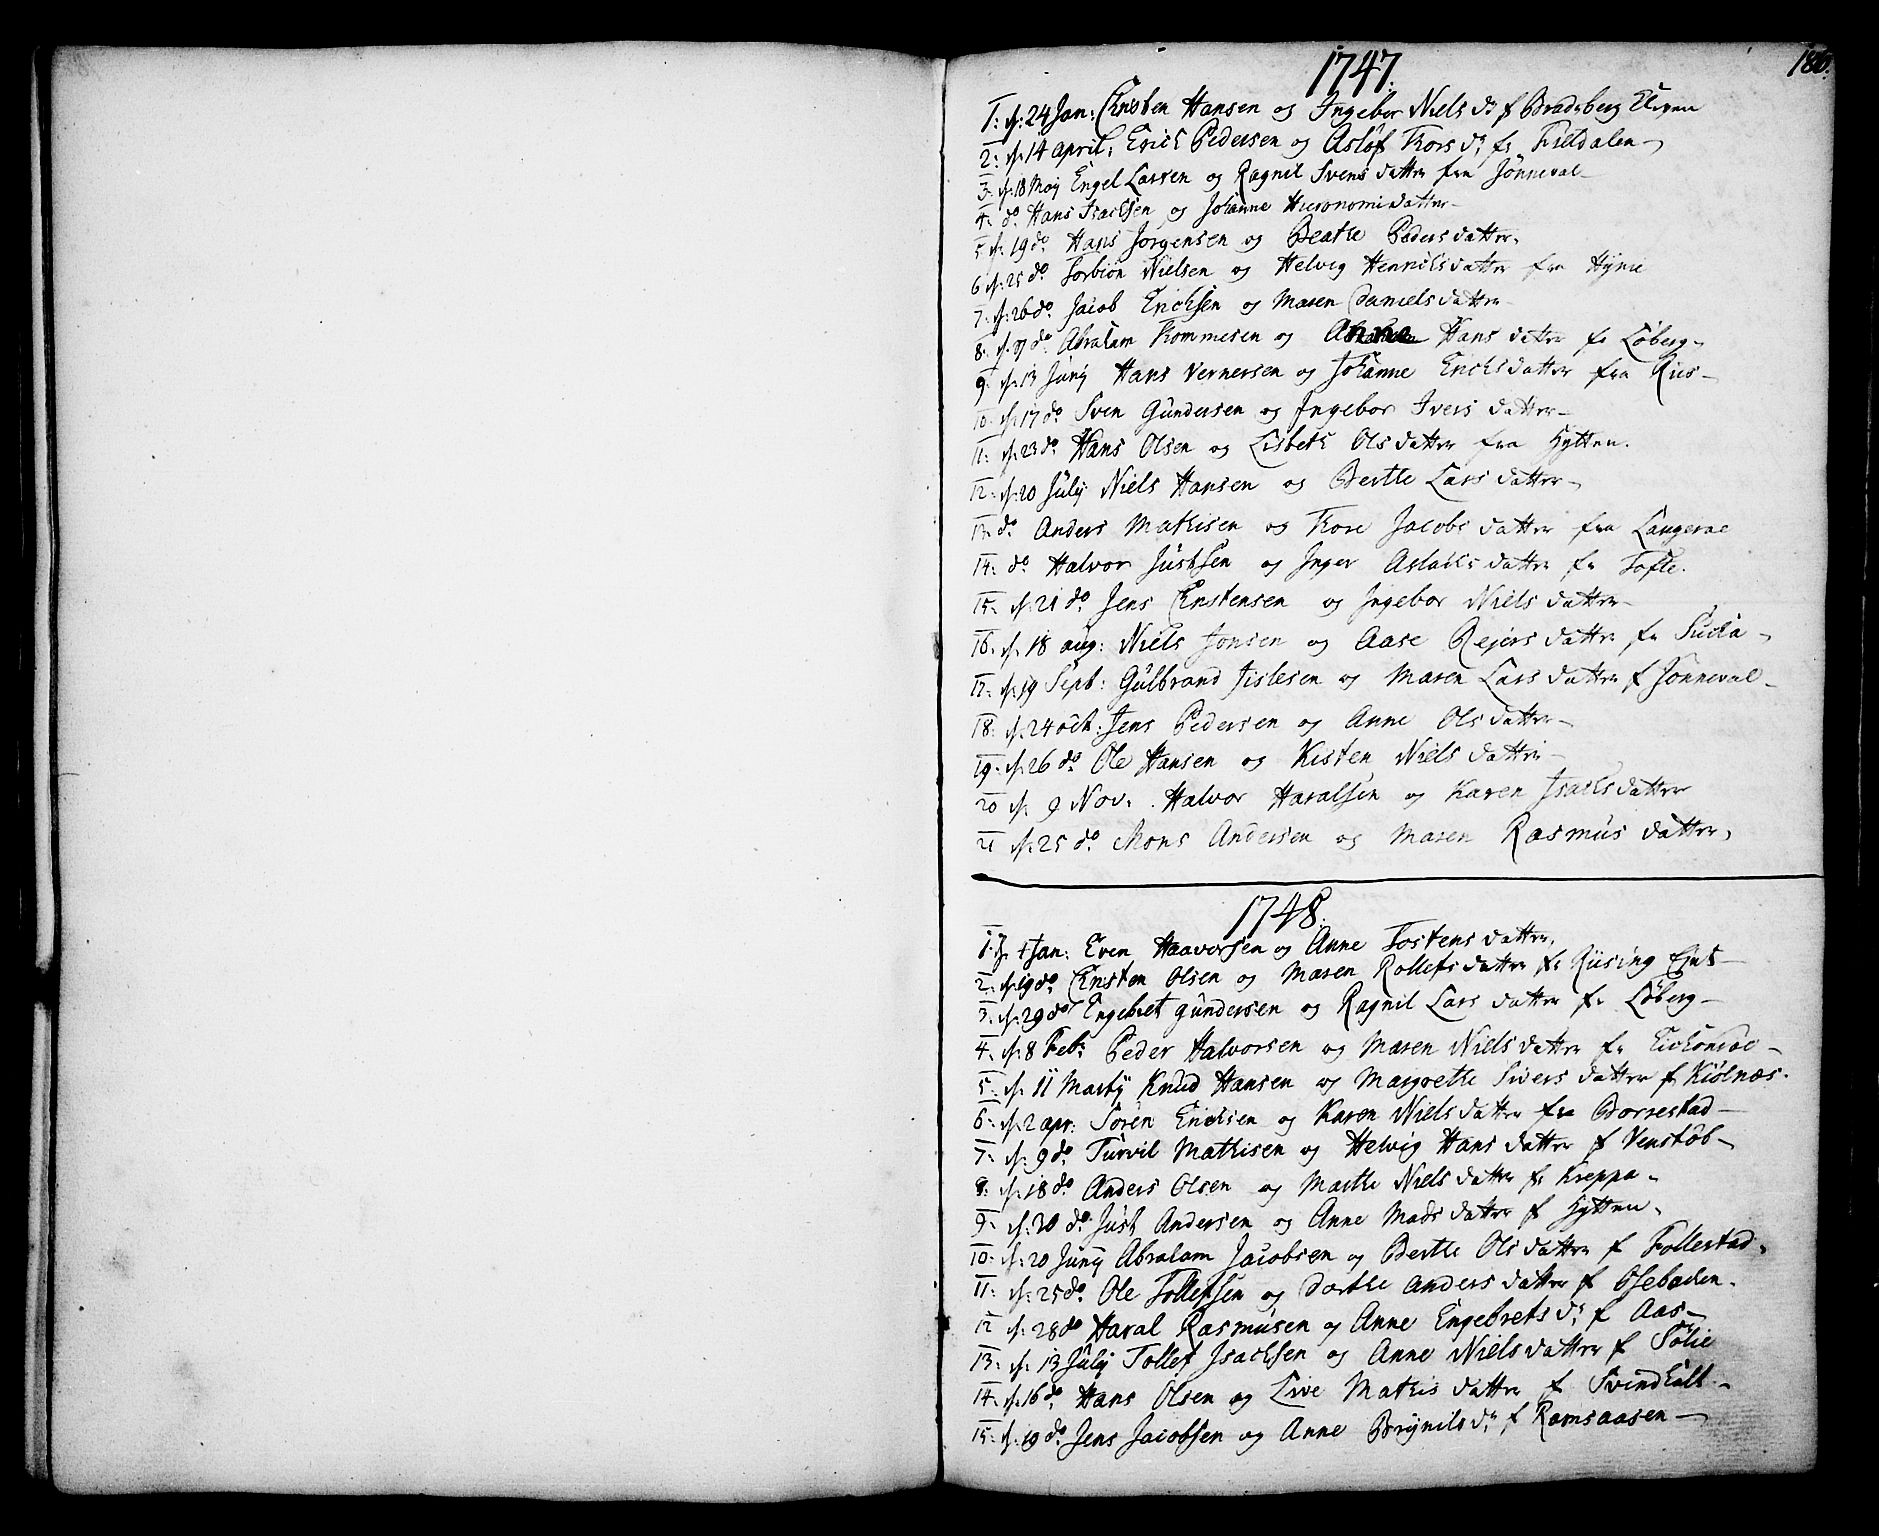 1747.
1: d: 24 Jan: Christen Hansen og Ingebor Niels dr f Bradsberg Eleven
2: d: 14 april: Erick Pedersen og Asløf Thors dr fr Fieldalen
3: d: 18 Maj Engel Larsen og Ragnil Svens datter fra Jønneval
4: do Hans Isachsen og Johanne Hieronomi datter
5 d: 19 do Hans Jørgensen og Beathe Peders datter.
6 d: 25 do Torbiøn Nielsen og Helvig Henrichs datter fra
7: d: 26 do Jacob Erichsen og Maren Daniels datter
8: d: 27 do: Abraham Thommesen og Anne Hans datter fr Løberg
9: d: 13 Junij Hans Vernersen og Johanne Erichs datter fra Riis
10: d: 17 do Sven Gundersen og Ingebor Ivers datter
11: d: 23 do Hans Olsen og Lisbeth Ols datter fra Hytten.
12: d: 20 Julij Niels Hansen og Berthe Lars datter
13: do Anders Mathisen og Thore Jacobs datter fra Langerae
14: do Halvor Justsen og Inger Aslachs datter fr Tofte.
15: d: 21 do Jens Christensen og Ingebor Niels datter
16: d: 18 aug: Niels Jonsen og Aase Rejers datter fr
17: d: 19 Sept: Gulbrand Jislesen og Maren Lars datter f Jønneval
18: d: 24 oct: Jens Pedersen og Anne Ols datter
19: d: 26 do Ole Hansen og Kisten Niels datter
20 d: 9 Nov: Halvor Haralsen og Karen Isachs datter
21 d: 25 do Mons Andersen og Maren Rasmus datter,
1748.
1. d: 1 Jan: Even Haavorsen og Anne Tostens datter.
2: d: 19 do Christen Olsen og Maren Rollefs datter fr Riising Ejet
3: d: 29 do Engebret Gundersen og Ragnil Lars datter fr Løberg
4: d: 8 Feb: Peder Halvorsen og Maren Niels datter fr
5: d: 11 Martij Knud Hansen og Margrethe Sivers datter f Kiølnæs.
6: d: 2 apr: Søren Erichsen og Karen Niels datter fra Borrestad
7: d: 9 do Turvil Mathisen og Helvig Hans datter f Venstøb
8: d: 18 do Anders Olsen og Marthe Niels datter fr Kreppa
9: d: 20 do Just Andersen og Anne Mads datter f Hytten.
10: d: 20 Junij Abraham Jacobsen og Berthe Ols datter f Follestad
11: d: 25 do: Ole Tollefsen og Dorthe Anders datter f Osebaden.
12 d: 28 do Haral Rasmusen og Anne Engebrets dr f Aas
13: d: 13 Julij Tollef Isachsen og Anne Niels datter f Sølie
14: d: 16 do Hans Olsen og Live Mathis datter f Svindholt
15: d: 19 do Jens Jacobsen og Anne Brynils dr f Ramsaasen